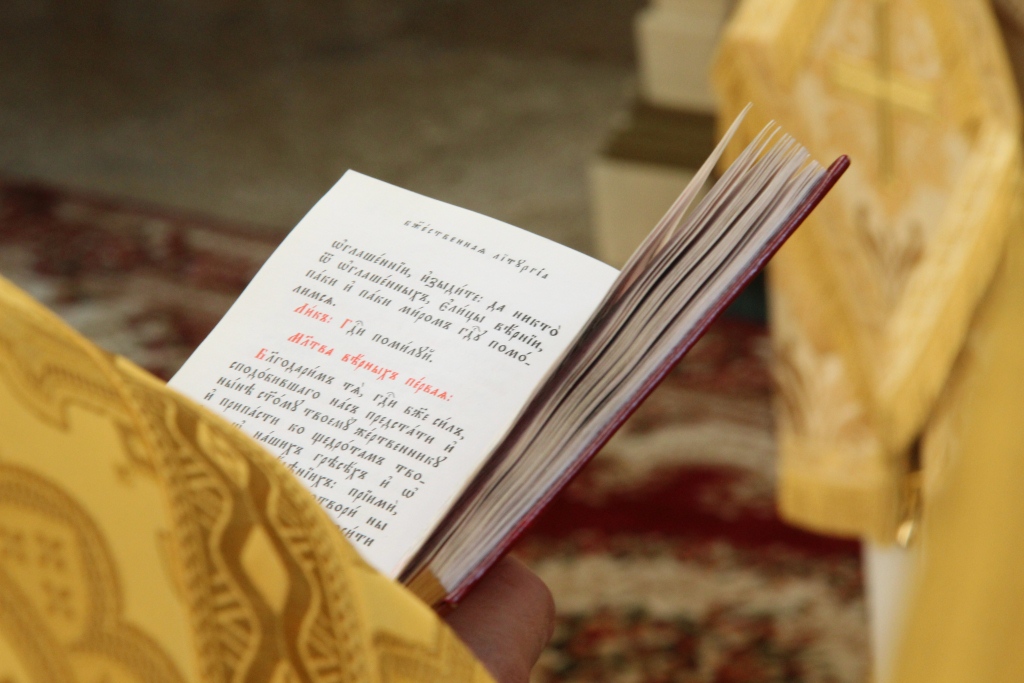 бж҃ественнаѧ лїтꙋргїа
ѡ҆глаше́ннїи, и҆зыди́те: да никто̀
ѿ ѡ҆глаше́нныхъ, є҆ли́цы вѣ́рнїи,
па́ки и҆ па́ки ми́ромъ гдⷭ҇ꙋ помо́-
лимсѧ.
Ли́къ: Гдⷭ҇и поми́лꙋй.
Мл҃тва вѣ́рныхъ пе́рваѧ:
Благодари́мъ тѧ̀, гдⷭ҇и бж҃е си́лъ,
сподо́бившаго на́съ предста́ти и҆
ны́нѣ ст҃о́мꙋ твоемꙋ̀ же́ртвенникꙋ
и҆ припа́сти ко щедро́тамъ тво-
на́шихъ грѣсѣ́хъ и҆ ѡ҆
прїимѝ,
ны